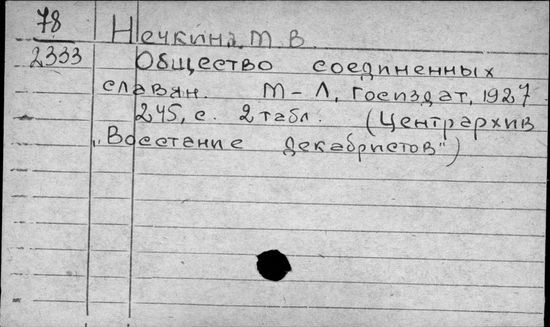 78
2333
Нечкина, М. В.
Общество соединенных
славян. М-Л, Госиздат, 1927
245, с. 2 табл. (Центрархив
„Восстание декабристов")